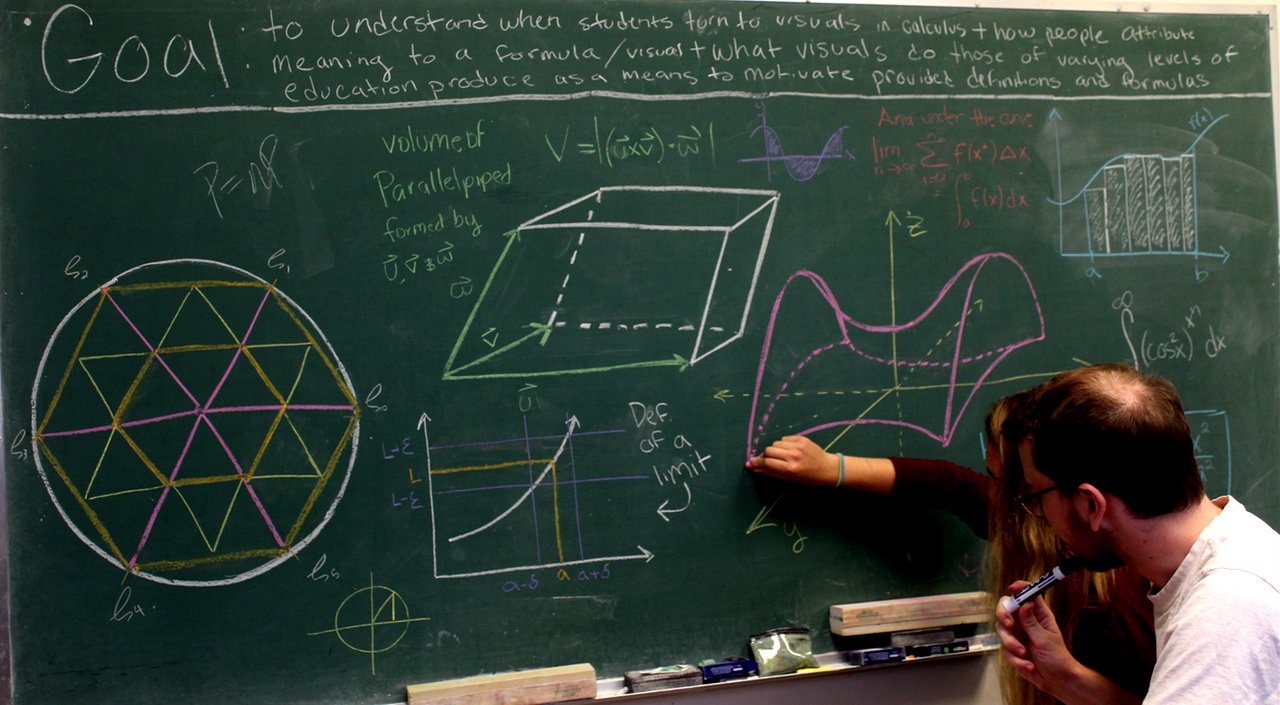 Goal: to understand when students turn to visuals in calculus + how people attribute
meaning to a formula/visual + what visuals do those of varying levels of
education produce as a means to motivate provided definitions and formulas
volume of
Parallelpiped
formed by
u⃗, v⃗ & w⃗
V = |(u⃗xv⃗)·w⃗|
y
x
Area under the curve
lim n→∞ ∑ f(x*)Δx
=
∫ₐᵇ f(x)dx
f(x)
a b
w⃗
v⃗
u⃗
z
y
∞
∫ (cos²x)^xⁿ dx
x²
ξ₂ ξ₁
ξ₀
ξ₃
ξ₄
ξ₅
L+ε
L
L-ε
a-δ a a+δ
Def.
of a
limit